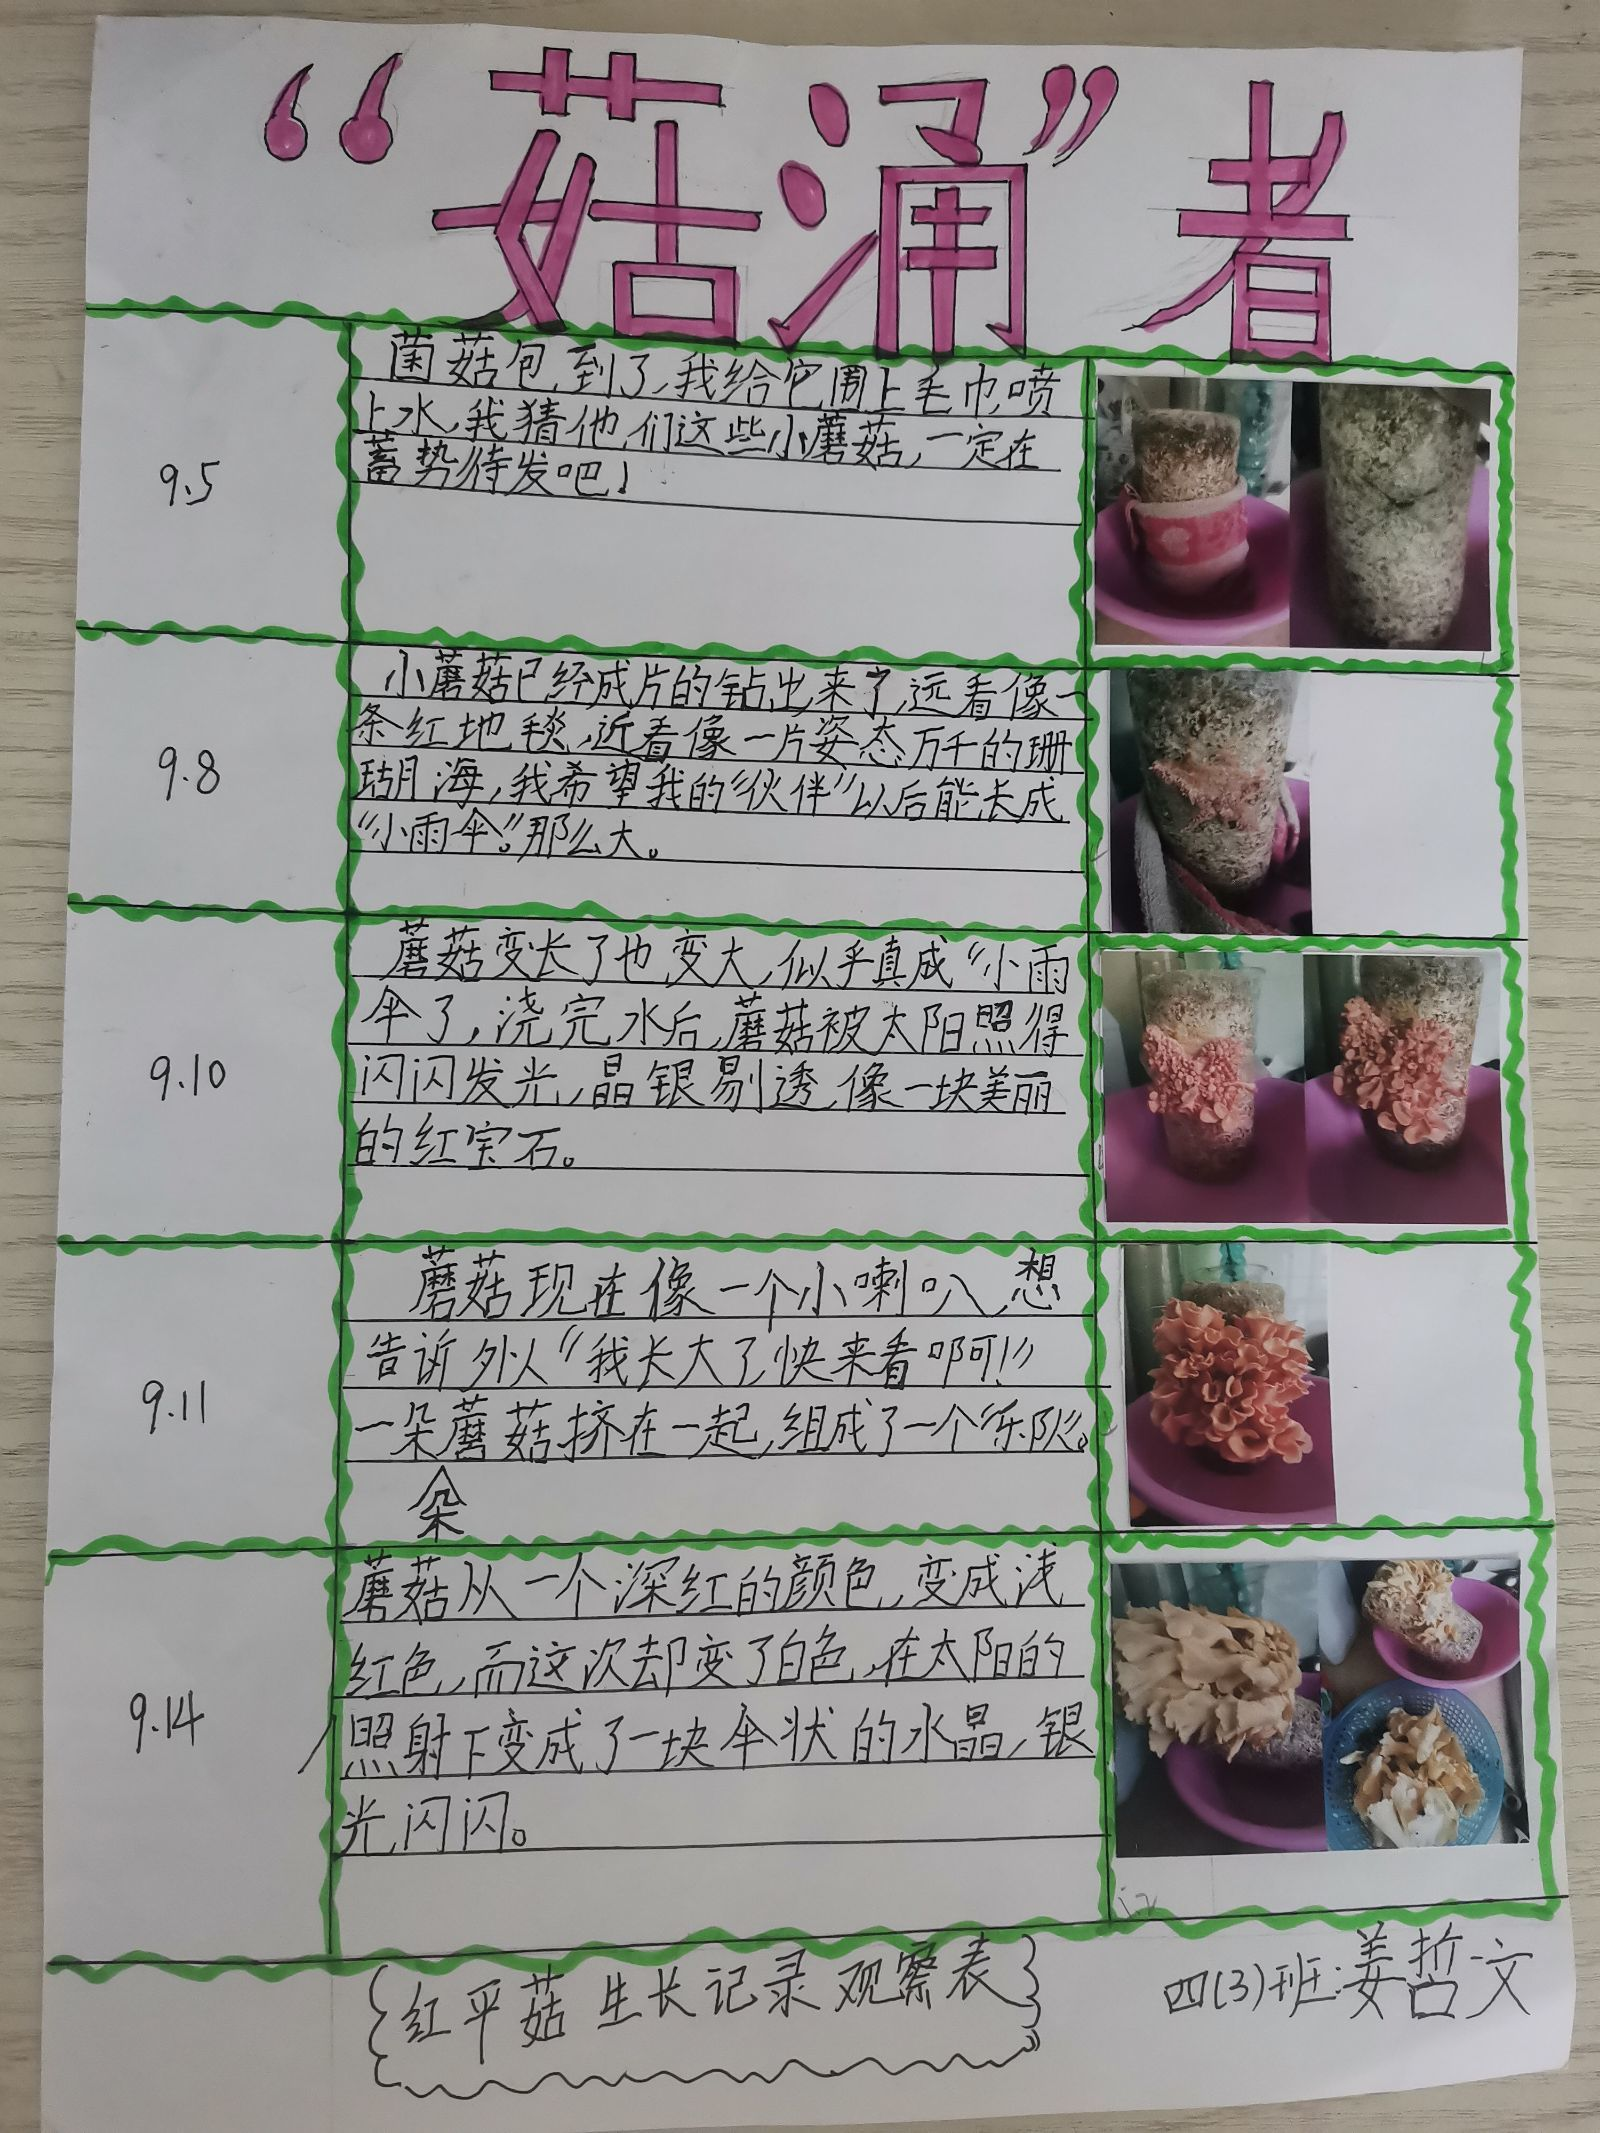 “菇涌”者
9.5
菌菇包,到了,我给它围上毛巾,喷
上水,我猜他们这些小蘑菇,一定在
蓄势待发吧!
9.8
小蘑菇已经成片的钻出来了,远看像一
条红地毯,近看像一片姿态万千的珊
瑚海,我希望我的“伙伴”以后能长成
“小雨伞”。那么大。
9.10
蘑菇变长了也变大,似乎真成“小雨
伞了,浇完水后,蘑菇被太阳照得
闪闪发光,晶银剔透,像一块美丽
的红宝石。
9.11
蘑菇现在像一个小喇叭,想
告诉外人“我长大了,快来看啊!”
一朵蘑菇挤在一起,组成了一个“乐队”。
朵
9.14
蘑菇从一个深红的颜色,变成浅
红色,而这次却变了白色,在太阳的
照射下变成了一块伞状的水晶,银
光闪闪。
红平菇生长记录观察表
四(3)班:姜哲文